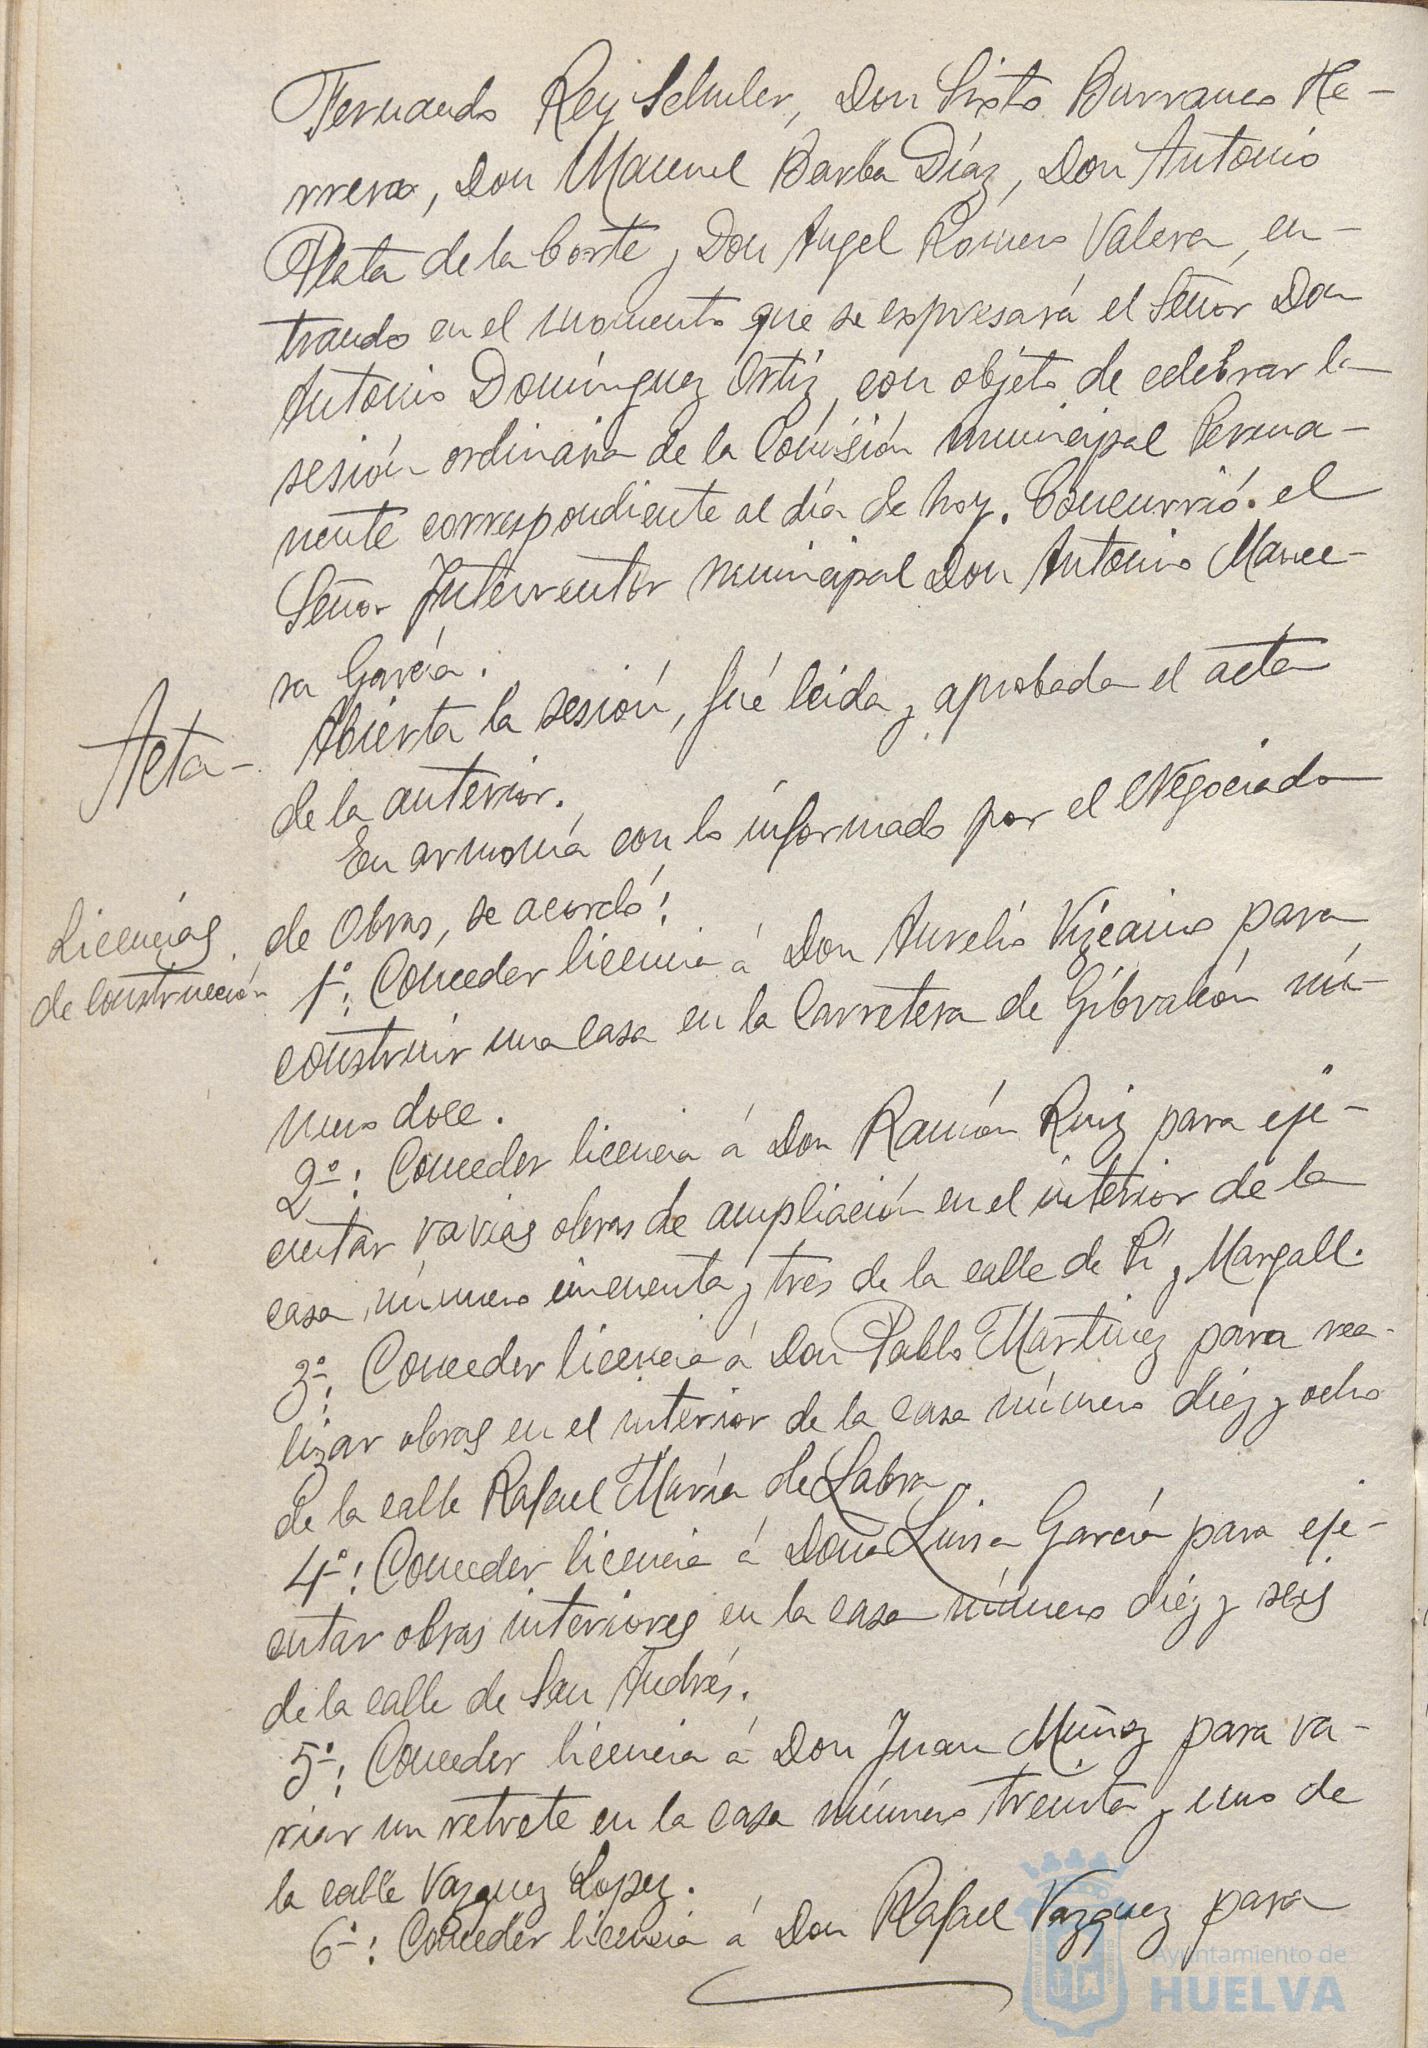 Fernando Rey Schuler, Don Sixto Burranco He-
rrera, Don Manuel Barba Díaz, Don Antonio
Plata de la Corte y Don Angel Romero Valera, en-
trando en el momento que se expresará el Señor Don
Antonio Domínguez Ortiz, con objeto de celebrar la
sesión ordinaria de la Comisión municipal Perma-
nente correspondiente al día de hoy. Concurrió el
Señor Interventor municipal Don Antonio Mance-
ra García.
Acta-
Abierta la sesión, fué leida y aprobada el acta
de la anterior.
En armonía con lo informado por el Negociado
Licencias
de construcción
de Obras, se acordó:
1º: Conceder licencia á Don Aurelio Vizcaino para
construir una casa en la Carretera de Gibraleón nú-
mero doce.
2º: Conceder licencia á Don Ramón Ruiz para eje-
cutar varias obras de ampliación en el interior de la
casa número cincuenta y tres de la calle de Pí y Margall.
3º: Conceder licencia á Don Pablo Martinez para rea-
lizar obras en el interior de la casa número diéz y ocho
de la calle Rafael María de Labra.
4º: Conceder licencia á Doña Luisa García para eje-
cutar obras interiores en la casa número diéz y seis
de la calle de San Andrés.
5º: Conceder licencia á Don Juan Muñoz para va-
riar un retrete en la casa número treinta y uno de
la calle Vazquez Lopez.
6º: Conceder licencia á Don Rafael Vazquez para
Ayuntamiento de
HUELVA